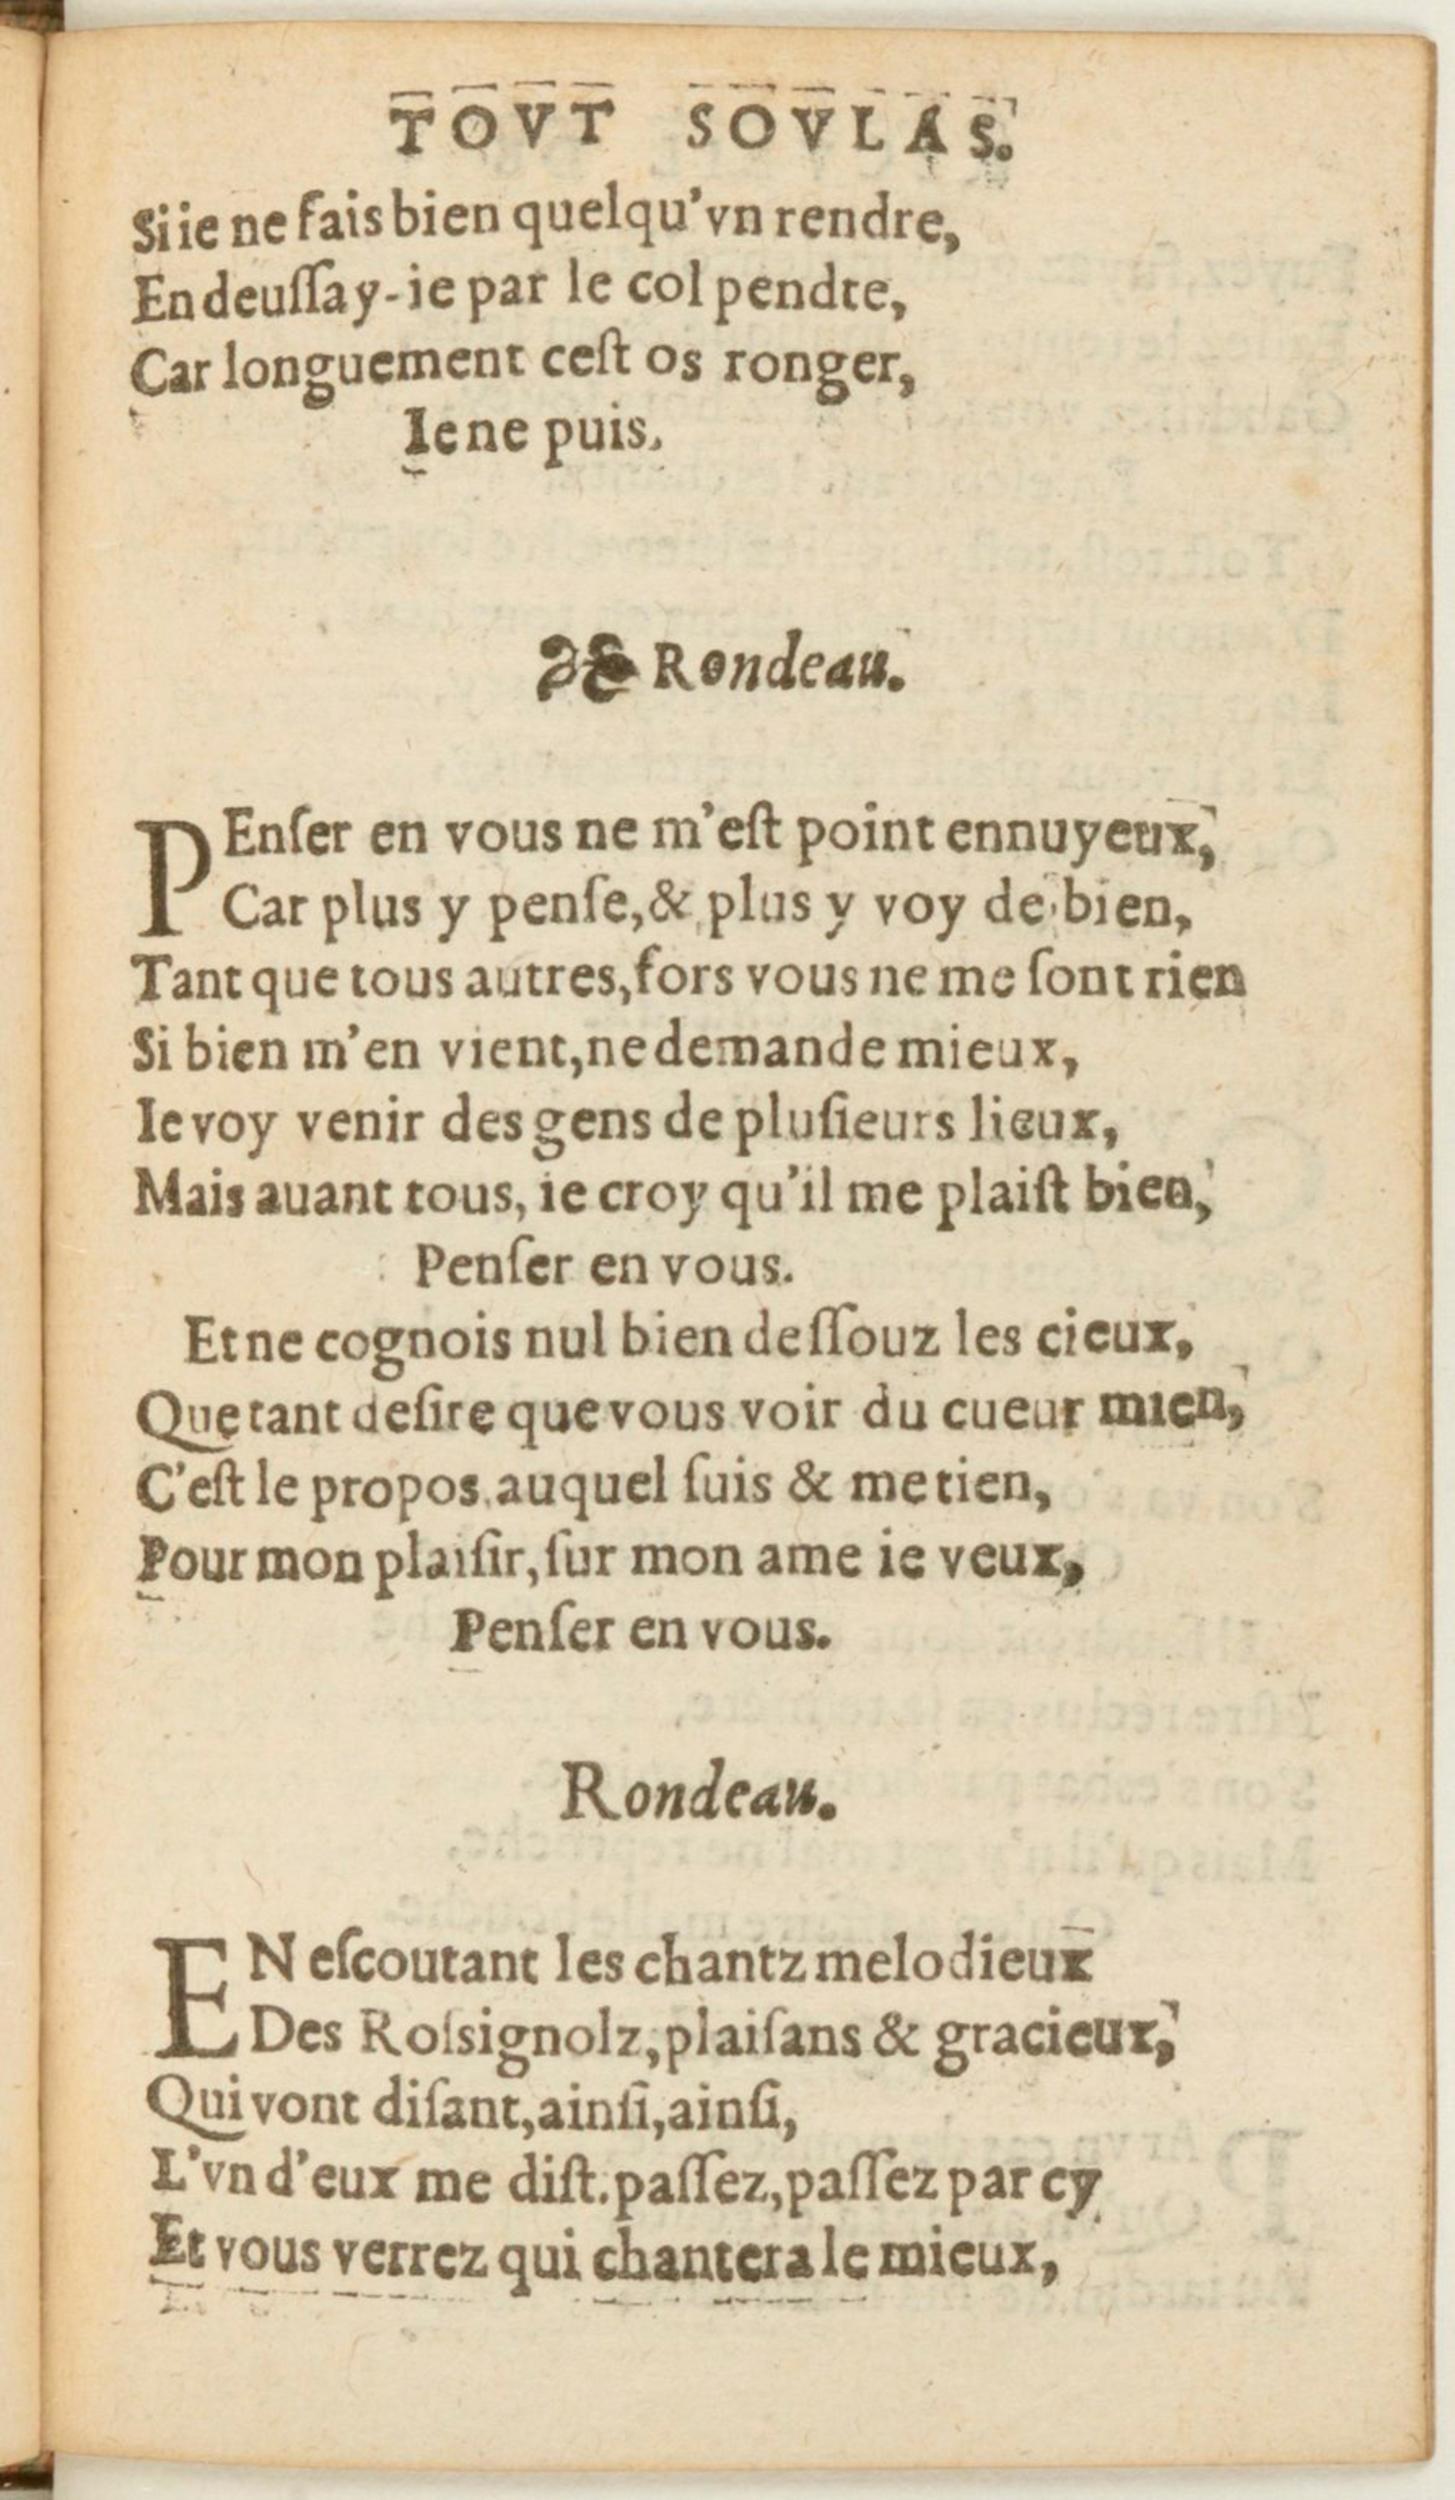 TOVT SOVLAS.
Si ie ne fais bien quelqu'vn rendre,
En deuſſay-ie par le col pendre,
Car longuement ceſt os ronger,
Ie ne puis.
Rondeau.
PEnſer en vous ne m'eſt point ennuyeux,
Car plus y penſe, & plus y voy de bien,
Tant que tous autres, fors vous ne me ſont rien
Si bien m'en vient, ne demande mieux,
Ie voy venir des gens de pluſieurs lieux,
Mais auant tous, ie croy qu'il me plaiſt bien,
Penſer en vous.
Et ne cognois nul bien deſſouz les cieux,
Que tant deſire que vous voir du cueur mien,
C'eſt le propos auquel ſuis & me tien,
Pour mon plaiſir, ſur mon ame ie veux,
Penſer en vous.
Rondeau.
EN eſcoutant les chantz melodieux
Des Roſsignolz, plaiſans & gracieux,
Qui vont diſant, ainſi, ainſi,
L'vn d'eux me diſt. paſſez, paſſez par cy
Et vous verrez qui chantera le mieux,